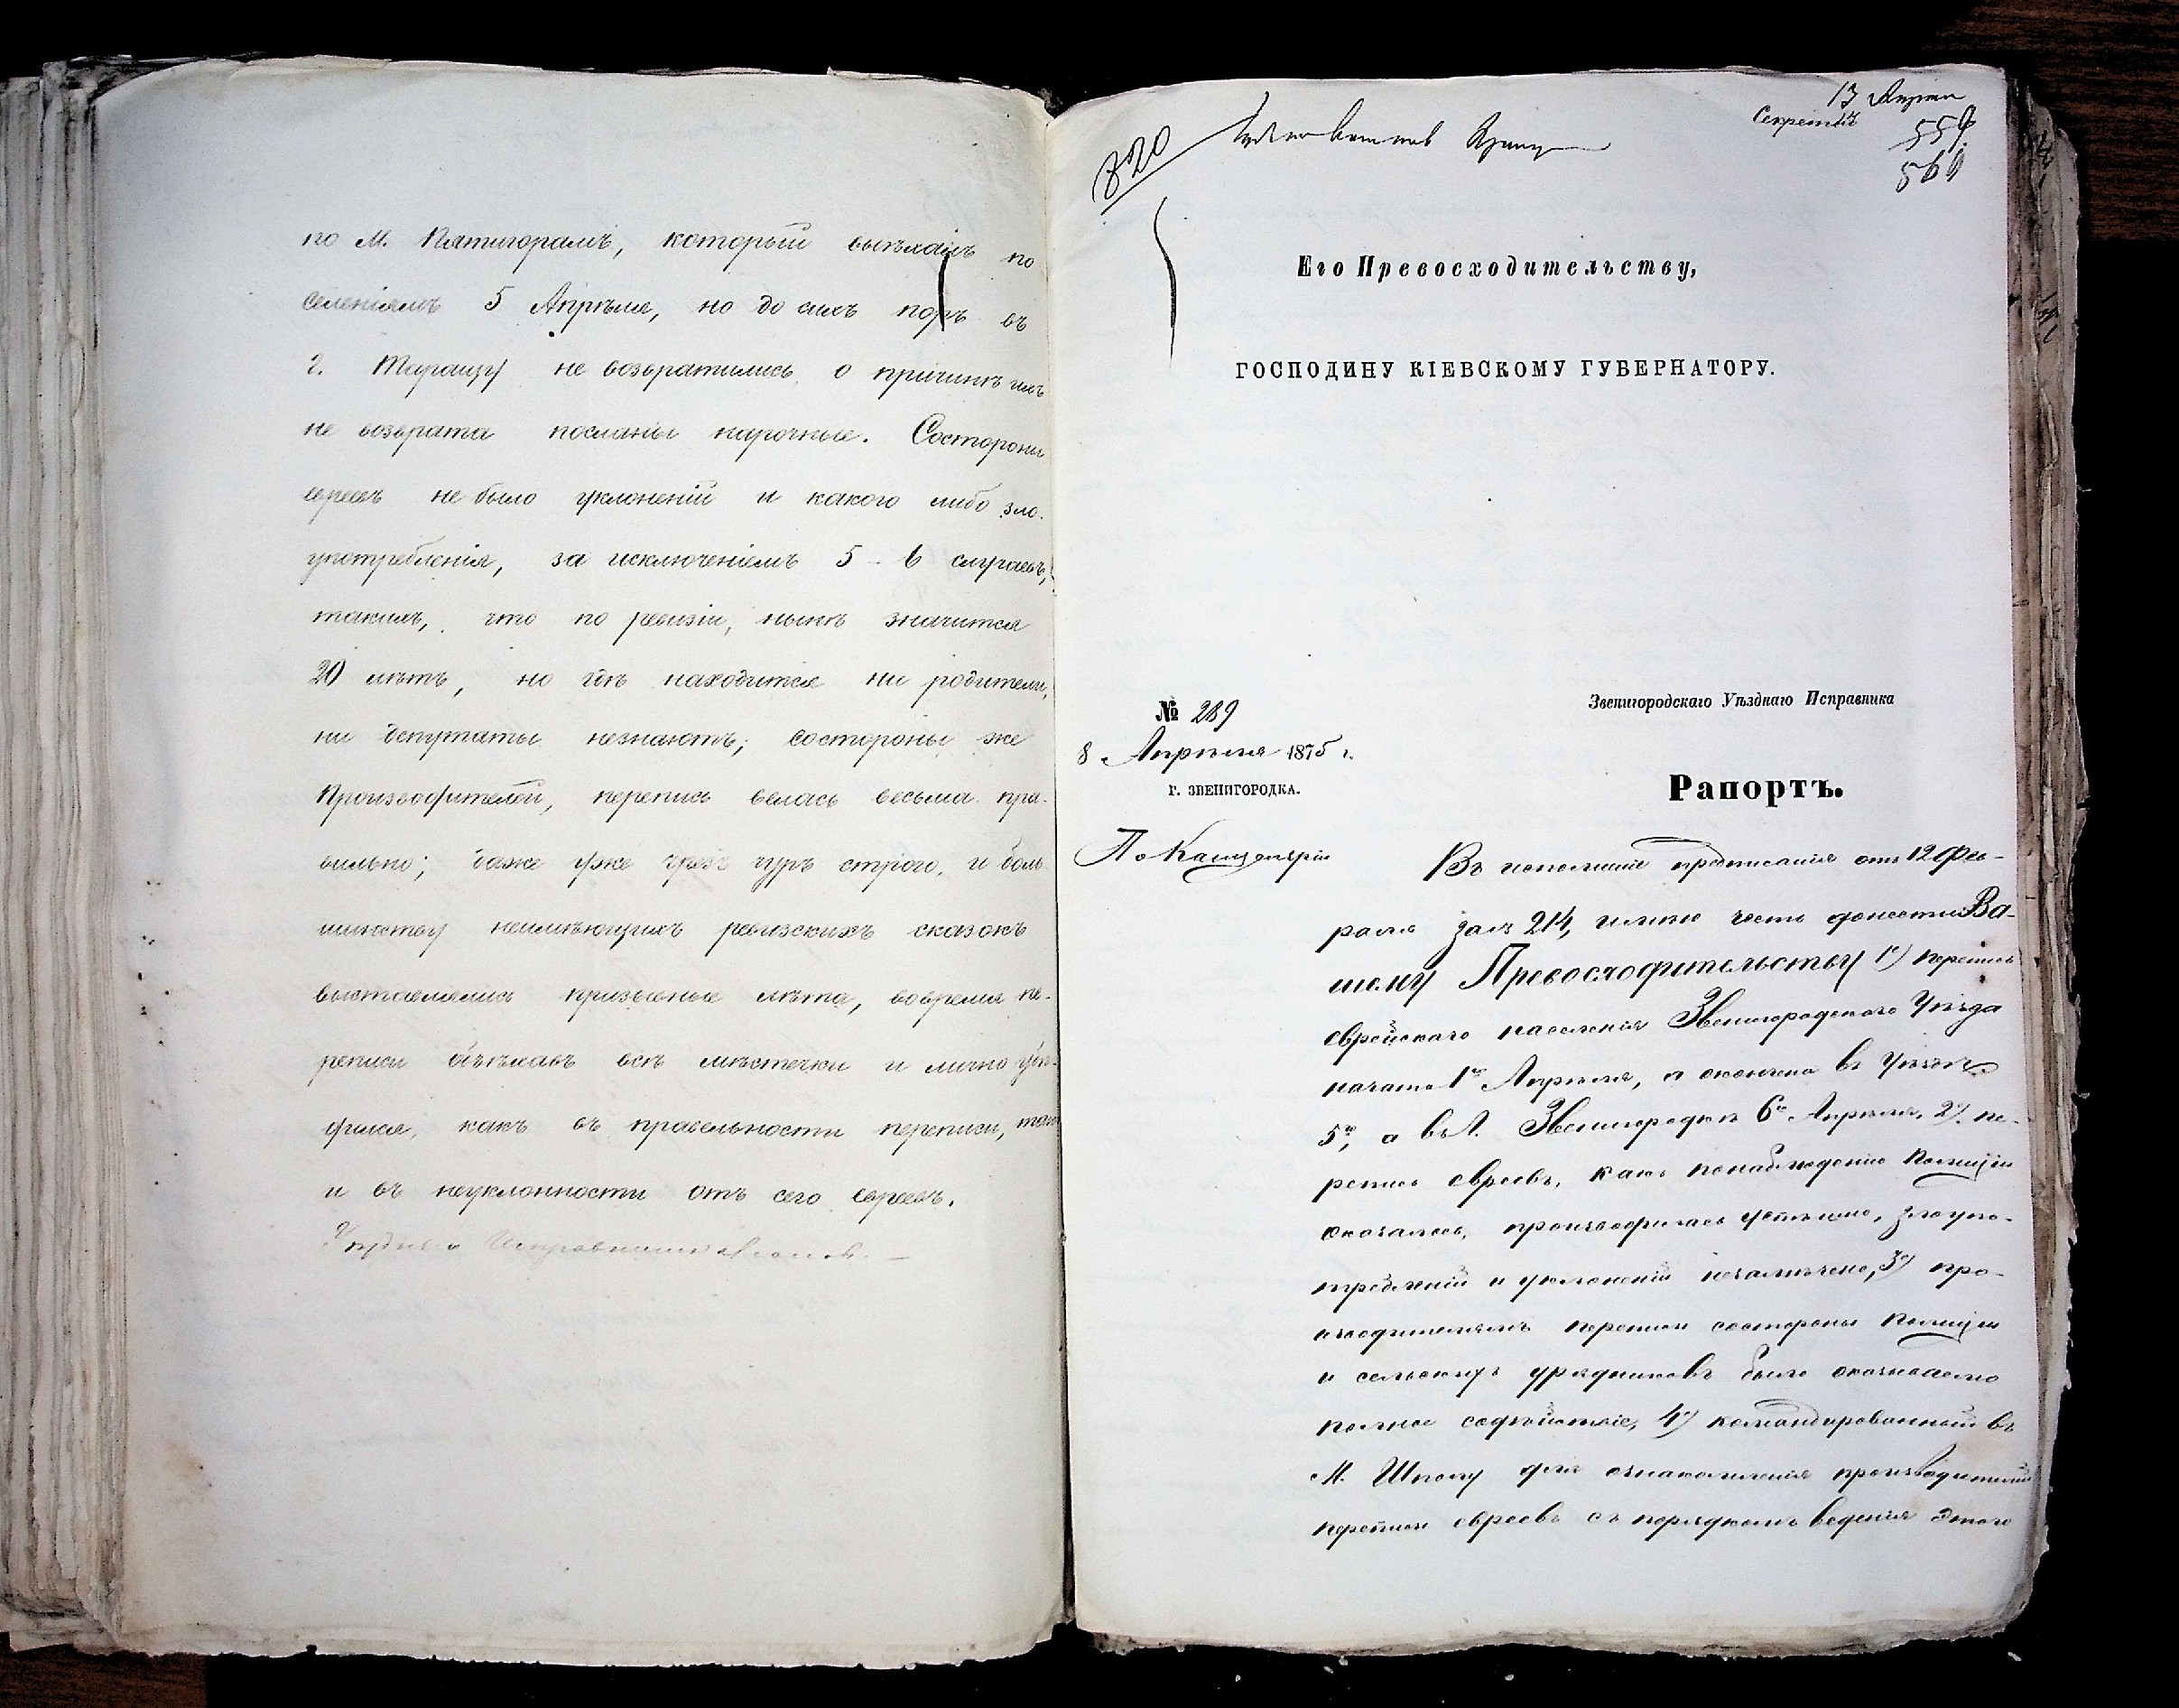 по М. Пятигорамъ, который выѣхалъ по
селеніямъ 5 Апрѣля, но до сихъ поръ въ
г. Таращу не возвратились, о причинѣ ихъ
не возврата посланы нарочные. Состороны
евреевъ не было уклоненій и какого либо зло-
употребленія, за исключеніемъ 5-6 случаевъ,
такихъ, что по ревизіи, нынѣ значится
20 лѣтъ, но гдѣ находится ни родители,
ни депутаты незнаютъ; состороны же
Производителей, перепись велась весьма пра-
вильно; даже уже чрезъ чуръ строго, и боль-
шинству неимѣющихъ ревизскихъ сказокъ
выставлялись призывные лѣта, вовремя пе-
реписи объѣхавъ всѣ мѣстечки и лично убѣ-
дился, какъ въ правельности переписи, такъ
и въ неуклонности отъ сего евреевъ.
Исправникъ
13 Апрѣля
Секретнѣ
559
560
320
Его Превосходительству,
ГОСПОДИНУ КІЕВСКОМУ ГУБЕРНАТОРУ.
№ 289
8 Апрѣля 1875 г.
Г. ЗВЕНИГОРОДКА.
По Канцеляріи
Звенигородскаго Уѣзднаго Исправника
Рапортъ.
Въ исполненіе предписанія отъ 12 Фев-
раля за № 214, имѣю честь донести Ва-
шему Превосходительству 1) перепись
еврейскаго населенія Звенигородскаго Уѣзда
начата 1го Апрѣля, а окончена въ Уѣздѣ
5го, а въ г. Звенигородкѣ 6го Апрѣля, 2) пе-
репись евреевъ, какъ понаблюденію Полиціи
оказалось, производилась успѣшно, злоупо-
требленій и уклоненій незамѣчено, 3) про-
изводителямъ переписи состороны Полиціи
и сельскихъ урядниковъ было оказываемо
полное содѣйствіе, 4) командированный въ
М. Шполу для ознакомленія производителей
переписи евреевъ съ порядкомъ веденія этого